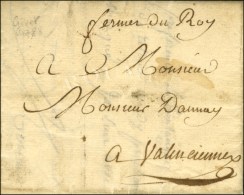 fermier du Roy
A Monsieur
Monsieur Dannay
A Valenciennes